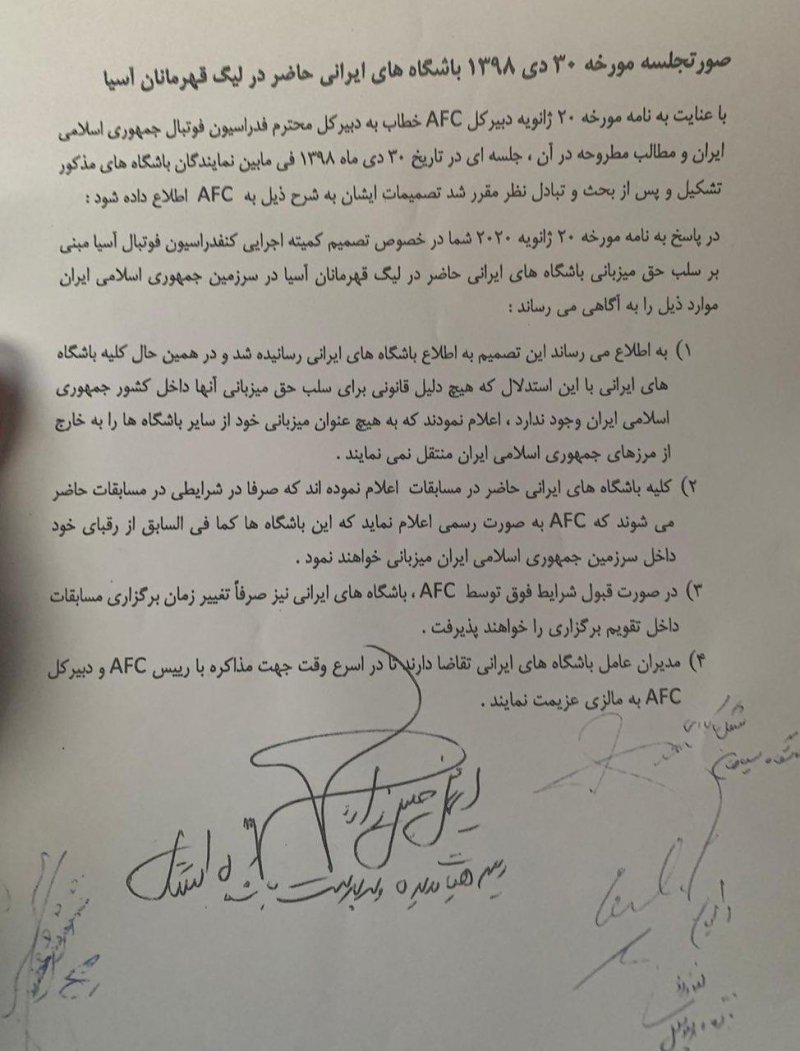 صورتجلسه مورخه ۳۰ دی ۱۳۹۸ باشگاه های ایرانی حاضر در لیگ قهرمانان آسیا
با عنایت به نامه مورخه ۲۰ ژانویه دبیرکل AFC خطاب به دبیرکل محترم فدراسیون فوتبال جمهوری اسلامی
ایران و مطالب مطروحه در آن ، جلسه ای در تاریخ ۳۰ دی ماه ۱۳۹۸ فی مابین نمایندگان باشگاه های مذکور
تشکیل و پس از بحث و تبادل نظر مقرر شد تصمیمات ایشان به شرح ذیل به AFC اطلاع داده شود :
در پاسخ به نامه مورخه ۲۰ ژانویه ۲۰۲۰ شما در خصوص تصمیم کمیته اجرایی کنفدراسیون فوتبال آسیا مبنی
بر سلب حق میزبانی باشگاه های ایرانی حاضر در لیگ قهرمانان آسیا در سرزمین جمهوری اسلامی ایران
موارد ذیل را به آگاهی می رساند :
۱) به اطلاع می رساند این تصمیم به اطلاع باشگاه های ایرانی رسانیده شد و در همین حال کلیه باشگاه
های ایرانی با این استدلال که هیچ دلیل قانونی برای سلب حق میزبانی آنها داخل کشور جمهوری
اسلامی ایران وجود ندارد ، اعلام نمودند که به هیچ عنوان میزبانی خود از سایر باشگاه ها را به خارج
از مرزهای جمهوری اسلامی ایران منتقل نمی نمایند .
۲) کلیه باشگاه های ایرانی حاضر در مسابقات اعلام نموده اند که صرفا در شرایطی در مسابقات حاضر
می شوند که AFC به صورت رسمی اعلام نماید که این باشگاه ها کما فی السابق از رقبای خود
داخل سرزمین جمهوری اسلامی ایران میزبانی خواهند نمود .
۳) در صورت قبول شرایط فوق توسط AFC ، باشگاه های ایرانی نیز صرفاً تغییر زمان برگزاری مسابقات
داخل تقویم برگزاری را خواهند پذیرفت .
۴) مدیران عامل باشگاه های ایرانی تقاضا دارند تا در اسرع وقت جهت مذاکره با رییس AFC و دبیرکل
AFC به مالزی عزیمت نمایند .
رییس هیات مدیره و سرپرست باشگاه استقلال